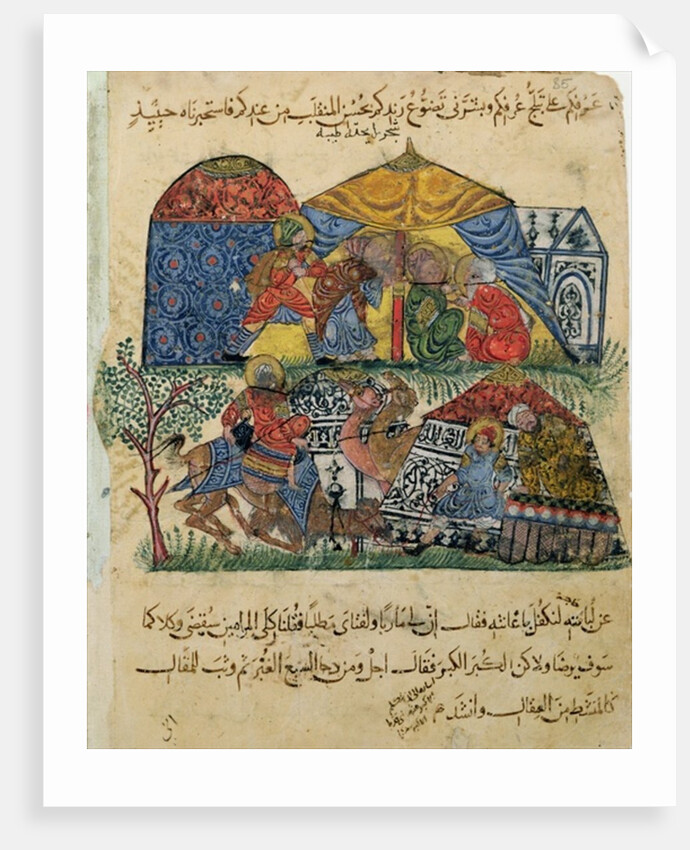 85
عرفكم على تأرج عرفكم وبشرني تضوع رندكم بحسن المنقلب من عندكم فاستخبرناه حينئذ
شجر رائحته طيبة
عن لبانته لنكفل باعانته فقال ان لي ماربا ولفتاى مطلبا فقلنا كلى المرامين سيقضى وكلا كما
سوف يرضا ولاكن الكبر الكبر فقال اجل ومن دحا السبع الغبر ثم وثب للمقال
كالمنشط من العقال وانشدهم